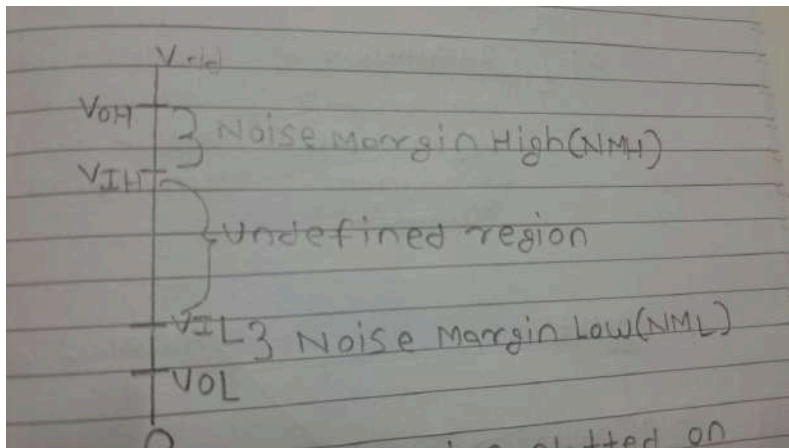 Vdd
VOH
} Noise Margin High(NMH)
VIH
} Undefined region
VIL } Noise Margin Low(NML)
VOL
0
plotted on